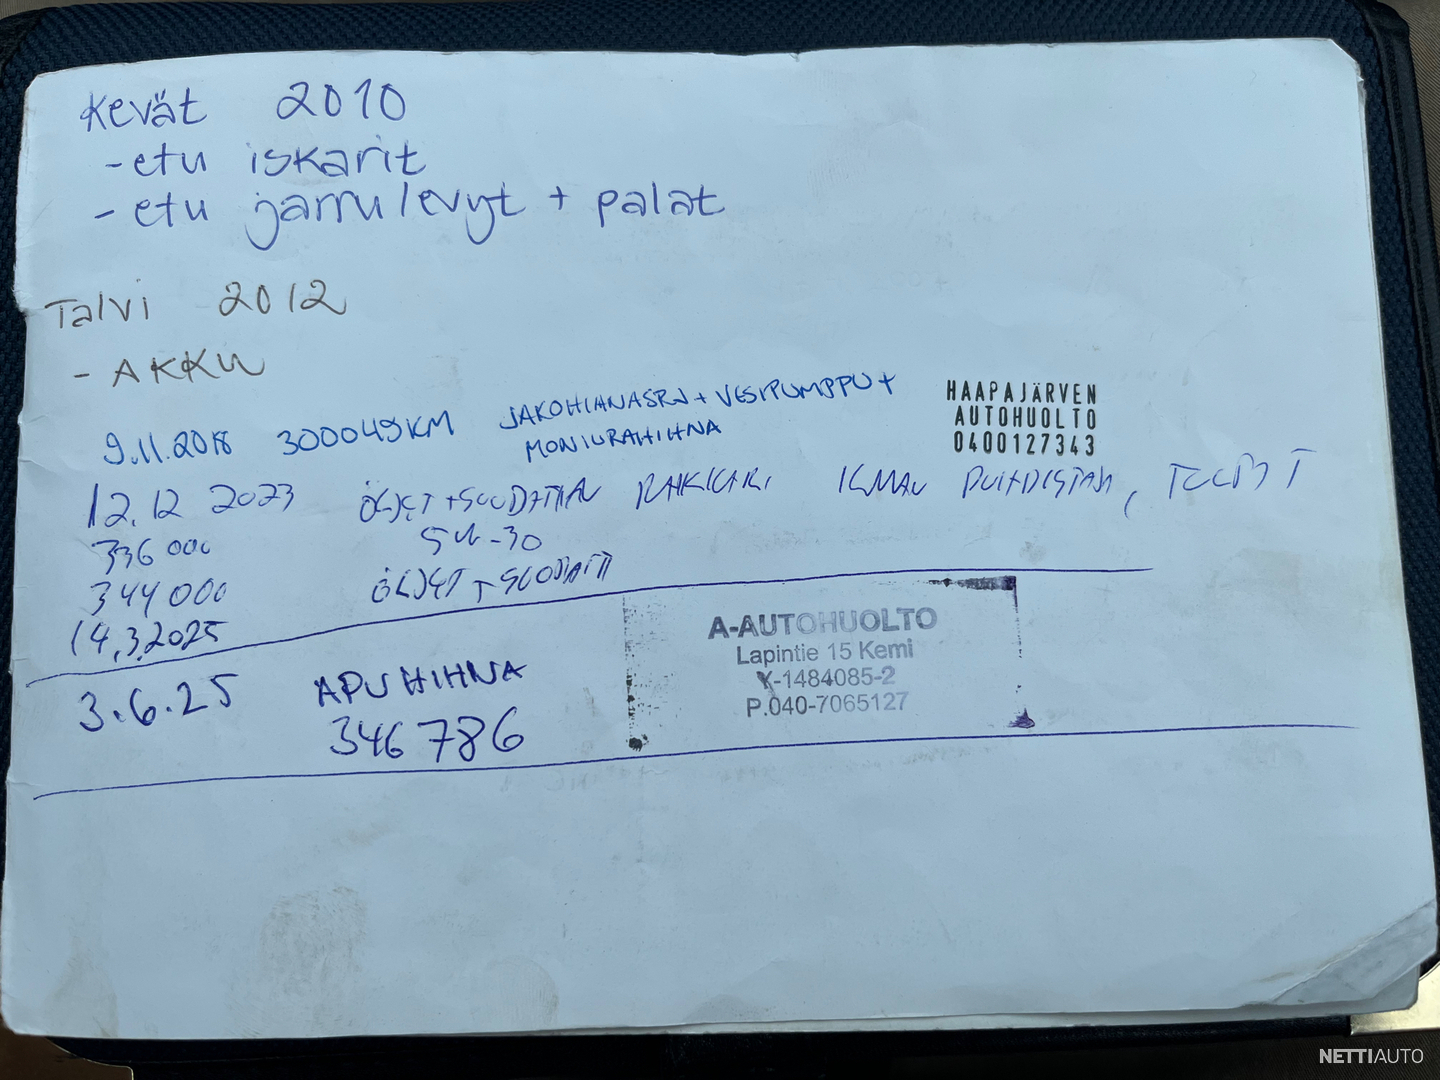 Kevät 2010
- etu iskarit
- etu jarrulevyt + palat
Talvi 2012
- AKKU
9.11.2018 300049KM JAKOHIHNASRJ + VESIPUMPPU +
MONIURAHIHNA
HAAPAJÄRVEN
AUTOHUOLTO
0400127343
12.12 2023 ÖLJYT + SUODATIN ILMAN PUHDISTAJA,
336 000 5W-30
344 000 ÖLJYT + SUODATIN
14.3.2025
3.6.25 APUHIHNA
346786
A-AUTOHUOLTO
Lapintie 15 Kemi
Y-1484085-2
P.040-7065127
NETTIAUTO